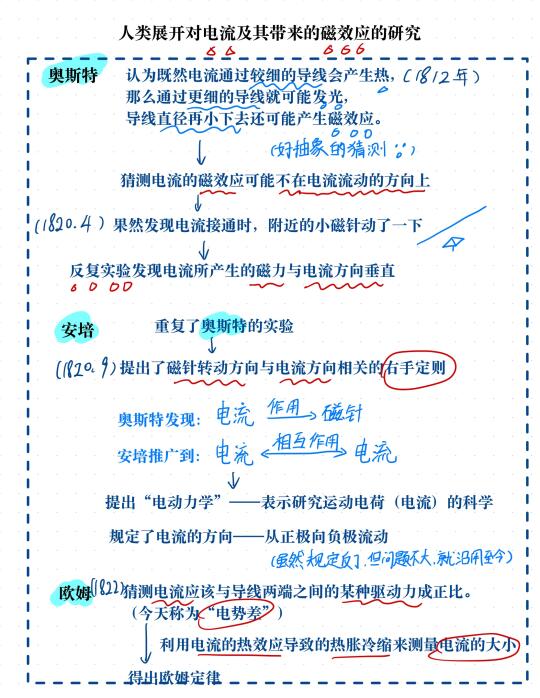 人类展开对电流及其带来的磁效应的研究
奥斯特 认为既然电流通过较细的导线会产生热，(1812年)
那么通过更细的导线就可能发光，
导线直径再小下去还可能产生磁效应。
(好抽象的猜测)
猜测电流的磁效应可能不在电流流动的方向上
(1820.4) 果然发现电流接通时，附近的小磁针动了一下
反复实验发现电流所产生的磁力与电流方向垂直
安培 重复了奥斯特的实验
(1820.9) 提出了磁针转动方向与电流方向相关的右手定则
奥斯特发现：电流 作用 磁针
安培推广到：电流 相互作用 电流
提出“电动力学”——表示研究运动电荷（电流）的科学
规定了电流的方向——从正极向负极流动
(虽然规定反了,但问题不大,就沿用至今)
欧姆 (1822) 猜测电流应该与导线两端之间的某种驱动力成正比。
（今天称为“电势差”）
利用电流的热效应导致的热胀冷缩来测量电流的大小
得出欧姆定律